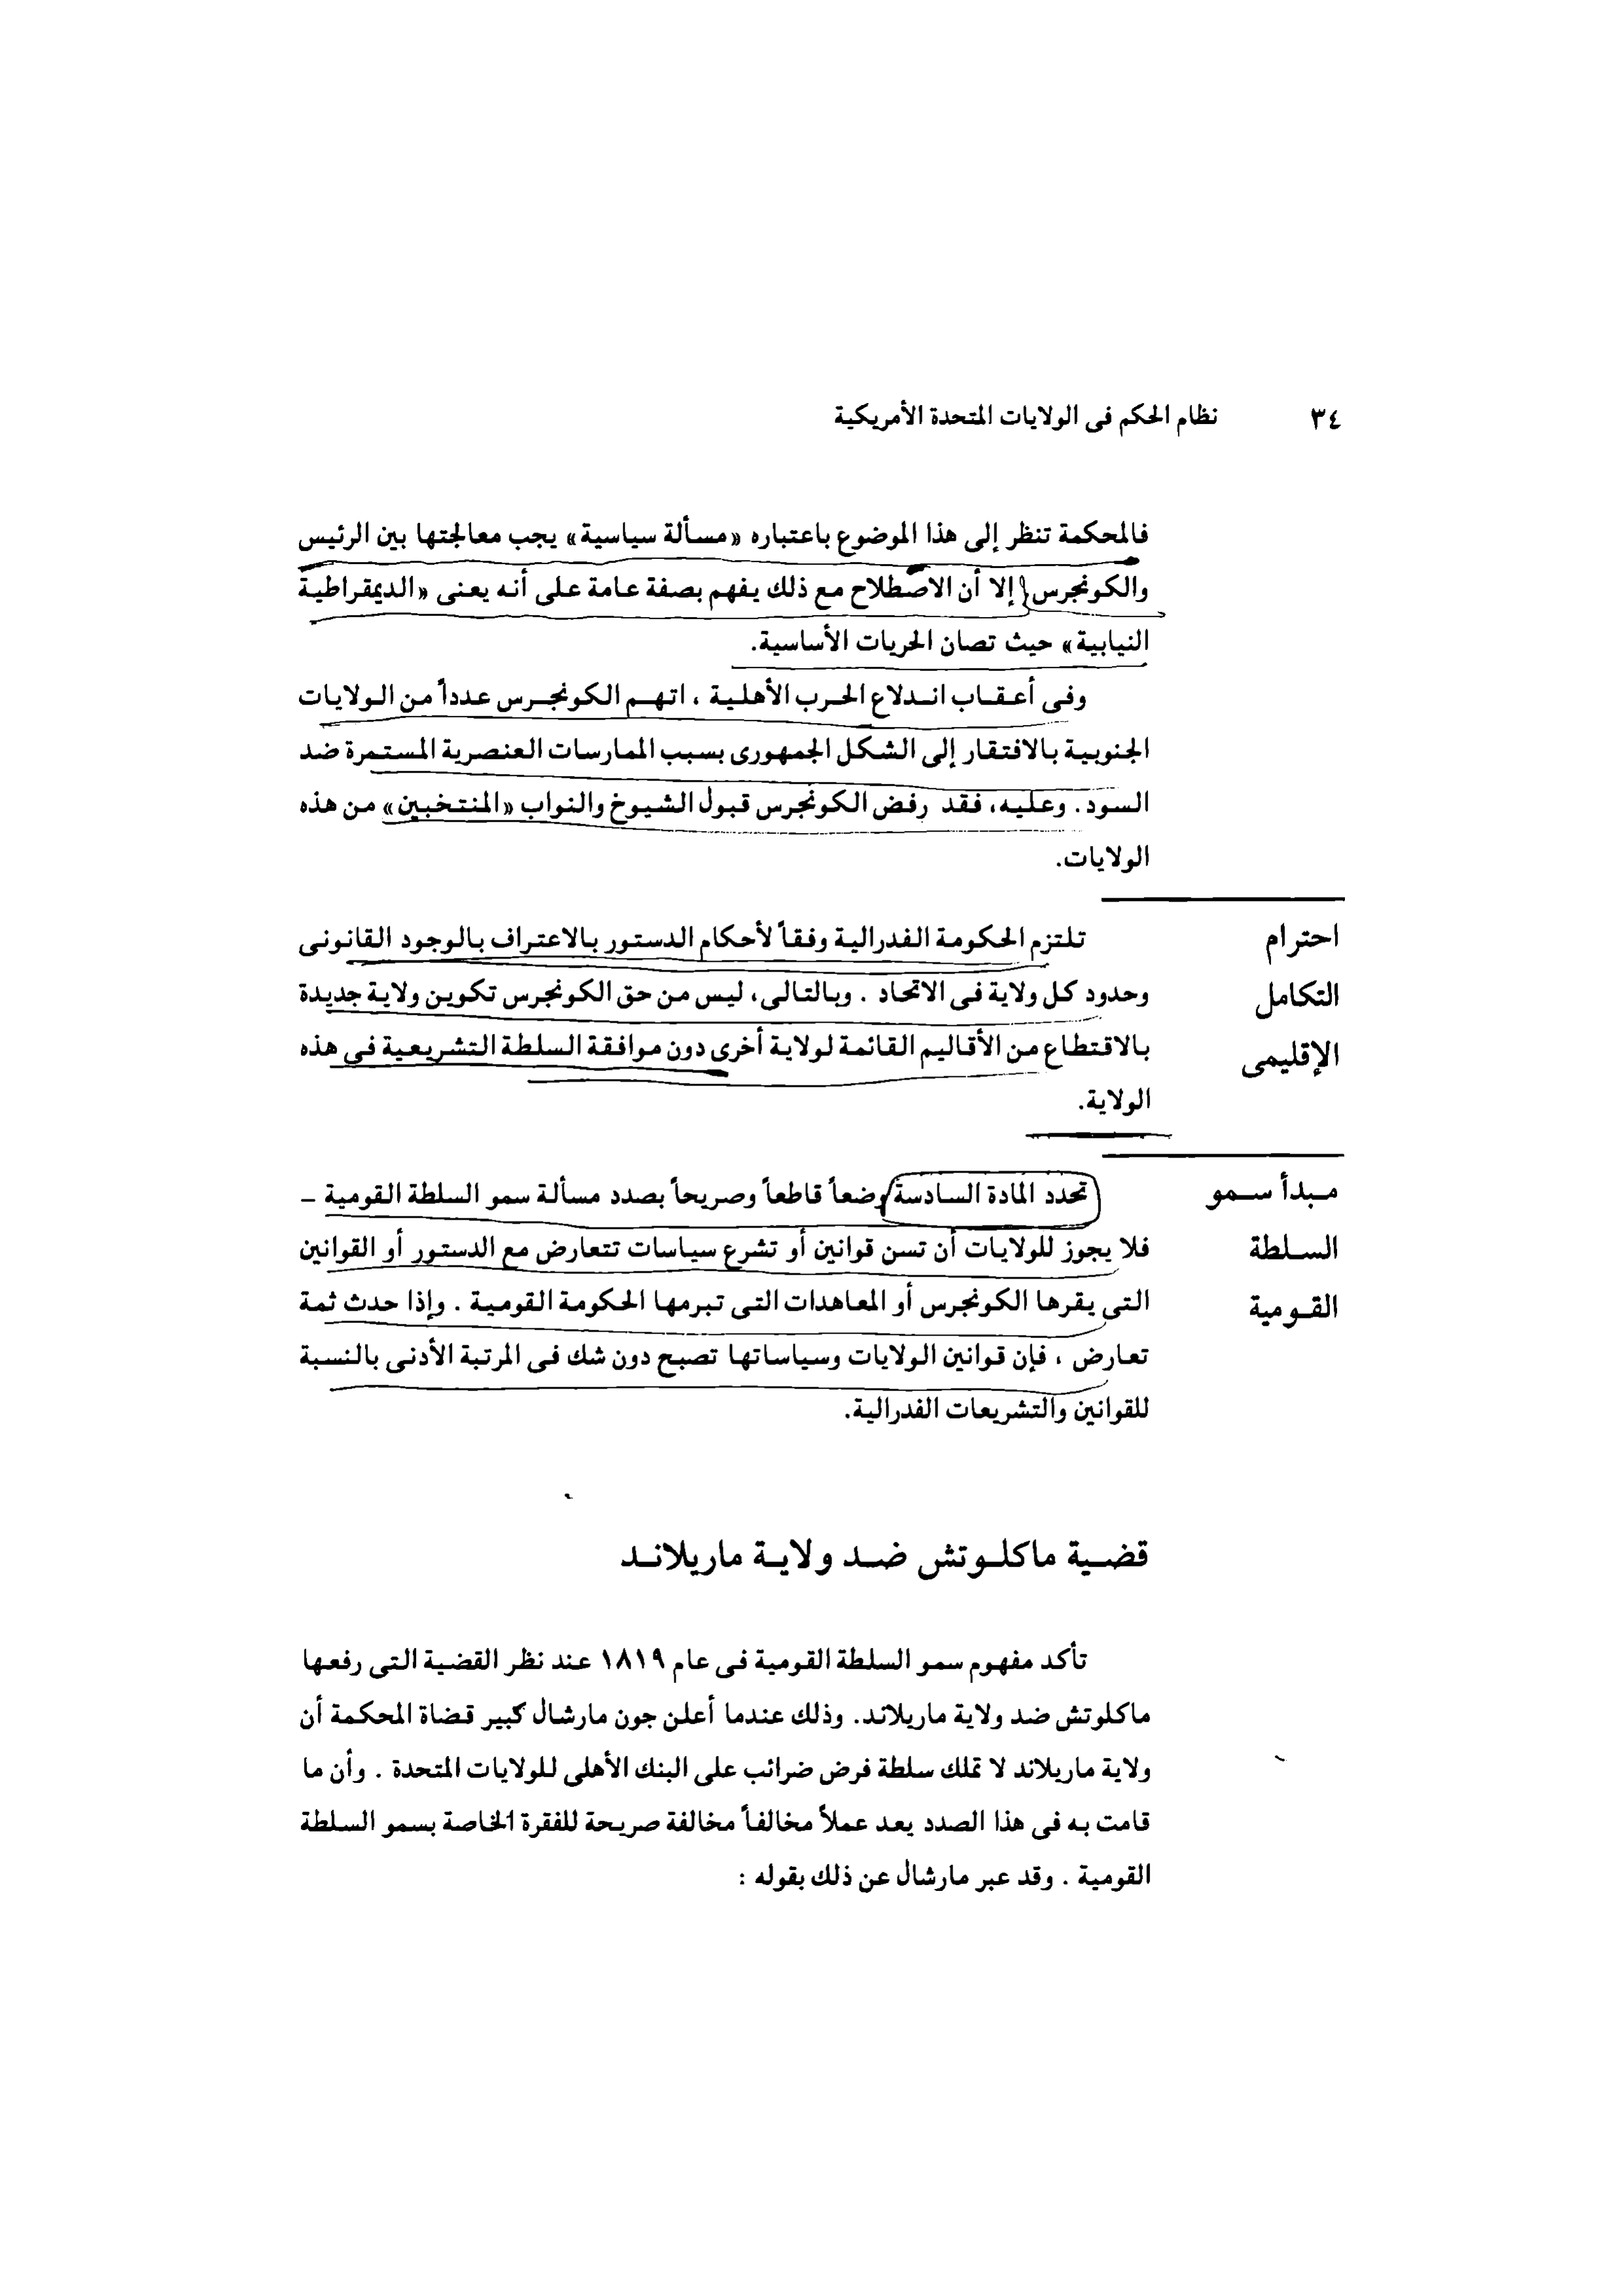 ٣٤ نظام الحكم فى الولايات المتحدة الأمريكية
فالمحكمة تنظر إلى هذا الموضوع باعتباره «مسألة سياسية» يجب معالجتها بين الرئيس
والكونجرس إلا أن الاصطلاح مع ذلك يفهم بصفة عامة على أنه يعنى «الديمقراطية
النيابية» حيث تصان الحريات الأساسية.
وفى أعقاب اندلاع الحرب الأهلية ، اتهم الكونجرس عدداً من الولايات
الجنوبية بالافتقار إلى الشكل الجمهورى بسبب الممارسات العنصرية المستمرة ضد
السود. وعليه، فقد رفض الكونجرس قبول الشيوخ والنواب «المنتخبين» من هذه
الولايات.
احترام
التكامل
الإقليمى
تلتزم الحكومة الفدرالية وفقاً لأحكام الدستور بالاعتراف بالوجود القانونى
وحدود كل ولاية فى الاتحاد . وبالتالى، ليس من حق الكونجرس تكوين ولاية جديدة
بالاقتطاع من الأقاليم القائمة لولاية أخرى دون موافقة السلطة التشريعية فى هذه
الولاية.
مبدأ سمو
السلطة
القومية
تحدد المادة السادسة وضعاً قاطعاً وصريحاً بصدد مسألة سمو السلطة القومية –
فلا يجوز للولايات أن تسن قوانين أو تشرع سياسات تتعارض مع الدستور أو القوانين
التى يقرها الكونجرس أو المعاهدات التى تبرمها الحكومة القومية . وإذا حدث ثمة
تعارض ، فإن قوانين الولايات وسياساتها تصبح دون شك فى المرتبة الأدنى بالنسبة
للقوانين والتشريعات الفدرالية.
قضية ماكلوتش ضد ولاية ماريلاند
تأكد مفهوم سمو السلطة القومية فى عام ١٨١٩ عند نظر القضية التى رفعها
ماكلوتش ضد ولاية ماريلاند. وذلك عندما أعلن جون مارشال كبير قضاة المحكمة أن
ولاية ماريلاند لا تملك سلطة فرض ضرائب على البنك الأهلى للولايات المتحدة . وأن ما
قامت به فى هذا الصدد يعد عملاً مخالفاً مخالفة صريحة للفقرة الخاصة بسمو السلطة
القومية . وقد عبر مارشال عن ذلك بقوله :